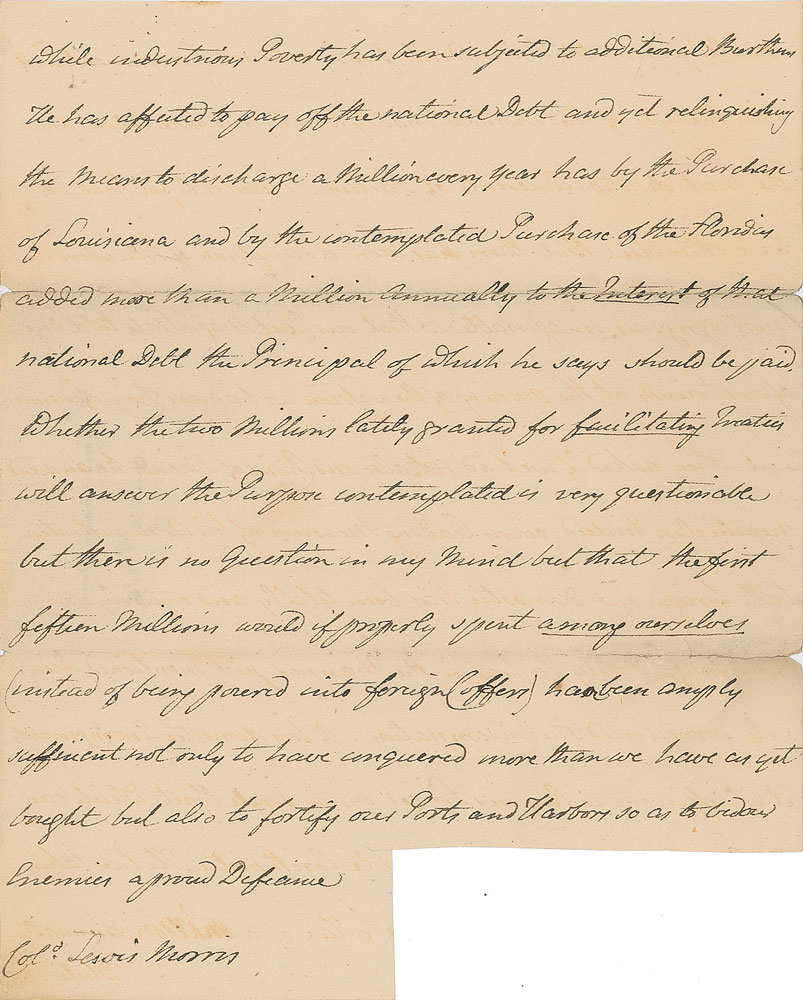 while industrious Poverty has been subjected to additional Burthens
He has affected to pay off the national Debt and yet relinquishing
the Means to discharge a Million every year has by the Purchase
of Louisiana and by the contemplated Purchase of the Floridas
added more than a Million Annually to the Interest of that
national Debt the Principal of which he says should be paid.
Whether the two Millions lately granted for facilitating Matters
will answer the Purpose contemplated is very questionable
but there is no Question in my Mind but that the first
fifteen Millions would if properly spent among ourselves
(instead of being poured into foreign Coffers) have been amply
sufficient not only to have conquered more than we have as yet
bought but also to fortify our Ports and Harbors so as to bid our
Enemies a proud Defiance
Colo. Lewis Morris